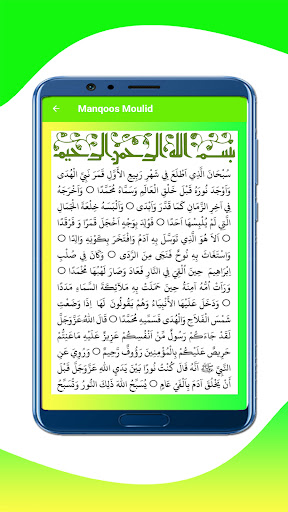 Manqoos Moulid
بسم الله الرحمن الرحيم
سُبْحَانَ الَّذِي أَطْلَعَ فِي شَهْرِ رَبِيعِ الأَوَّلِ قَمَرَ نَبِيِّ الْهُدَى
وَأَوْجَدَ نُورَهُ قَبْلَ خَلْقِ الْعَالَمِ وَسَمَّاهُ مُحَمَّدًا ○ وَأَخْرَجَهُ
فِي آخِرِ الزَّمَانِ كَمَا قَدَّرَ وَأَبْدَى ○ وَأَلْبَسَهُ خِلْعَةَ الْجَمَالِ
الَّتِي لَمْ يُلْبِسْهَا أَحَدًا ○ فَوُلِدَ بِوَجْهٍ أَخْجَلَ قَمَرًا وَ فَرْقَدًا
○ أَلاَ هُوَ الَّذِي تَوَسَّلَ بِهِ آدَمُ وَافْتَخَرَ بِكَوْنِهِ وَالِدًا ○
وَاسْتَغَاثَ بِهِ نُوحٌ فَنَجَى مِنَ الرَّدَى ○ وَكَانَ فِي صُلْبِ
إِبْرَاهِيمَ حِينَ أُلْقِيَ فِي النَّارِ فَعَادَ وَصَارَ لَهَبُهَا مُخْمَدًا ○
وَرَأَتْ أُمُّهُ آمِنَةُ حِينَ حَمَلَتْ بِهِ مَلاَئِكَةَ السَّمَاءِ مَدَدًا
○ وَدَخَلَ عَلَيْهِ الأَنْبِيَاءُ وَهُمْ يَقُولُونَ لَهَا إِذَا وَضَعْتِ
شَمْسَ الْفَلاَحِ وَالْهُدَى فَسَمِّيهِ مُحَمَّدًا ○ قَالَ اللهُ عَزَّوَجَلَّ
لَقَدْ جَاءَكُمْ رَسُولٌ مِّنْ أَنْفُسِكُمْ عَزِيزٌ عَلَيْهِ مَاعَنِتُّمْ
حَرِيصٌ عَلَيْكُمْ بِالْمُؤْمِنِينَ رَؤُوفٌ رَّحِيمٌ ○ وَرُوِيَ عَنِ
النَّبِيِّ ﷺ أَنَّهُ قَالَ كُنْتُ نُورًا بَيْنَ يَدَيِ اللهِ عَزَّوَجَلَّ قَبْلَ
أَنْ يَخْلُقَ آدَمَ بِأَلْفَيْ عَامٍ ○ يُسَبِّحُ اللهَ ذَلِكَ النُّورُ وَتُسَبِّحُ